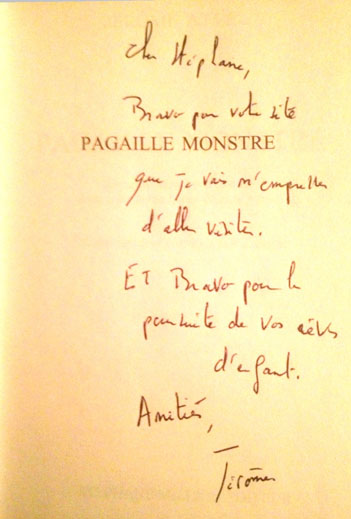 Cher Stéphane,
Bravo pour votre site
PAGAILLE MONSTRE
que je vais m'empresser
d'aller visiter.
ET Bravo pour la
poursuite de vos rêves
d'enfant.
Amitiés,
Jérôme